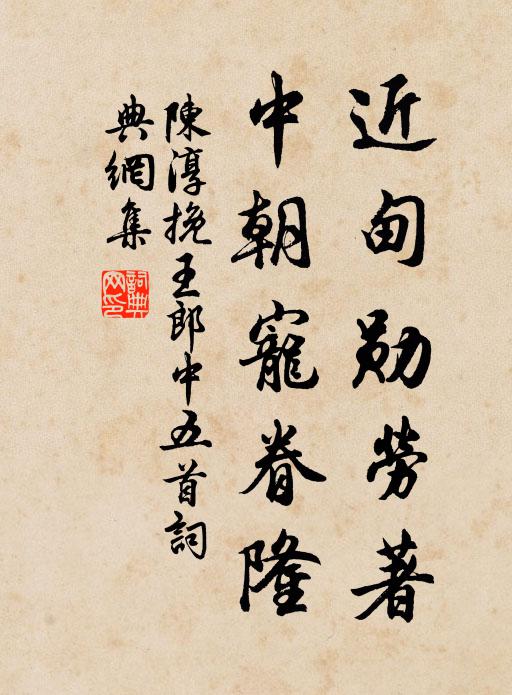 近甸勛勞著
中朝寵眷隆
陳淳挽王郎中五首詞
典網集
詞典網印